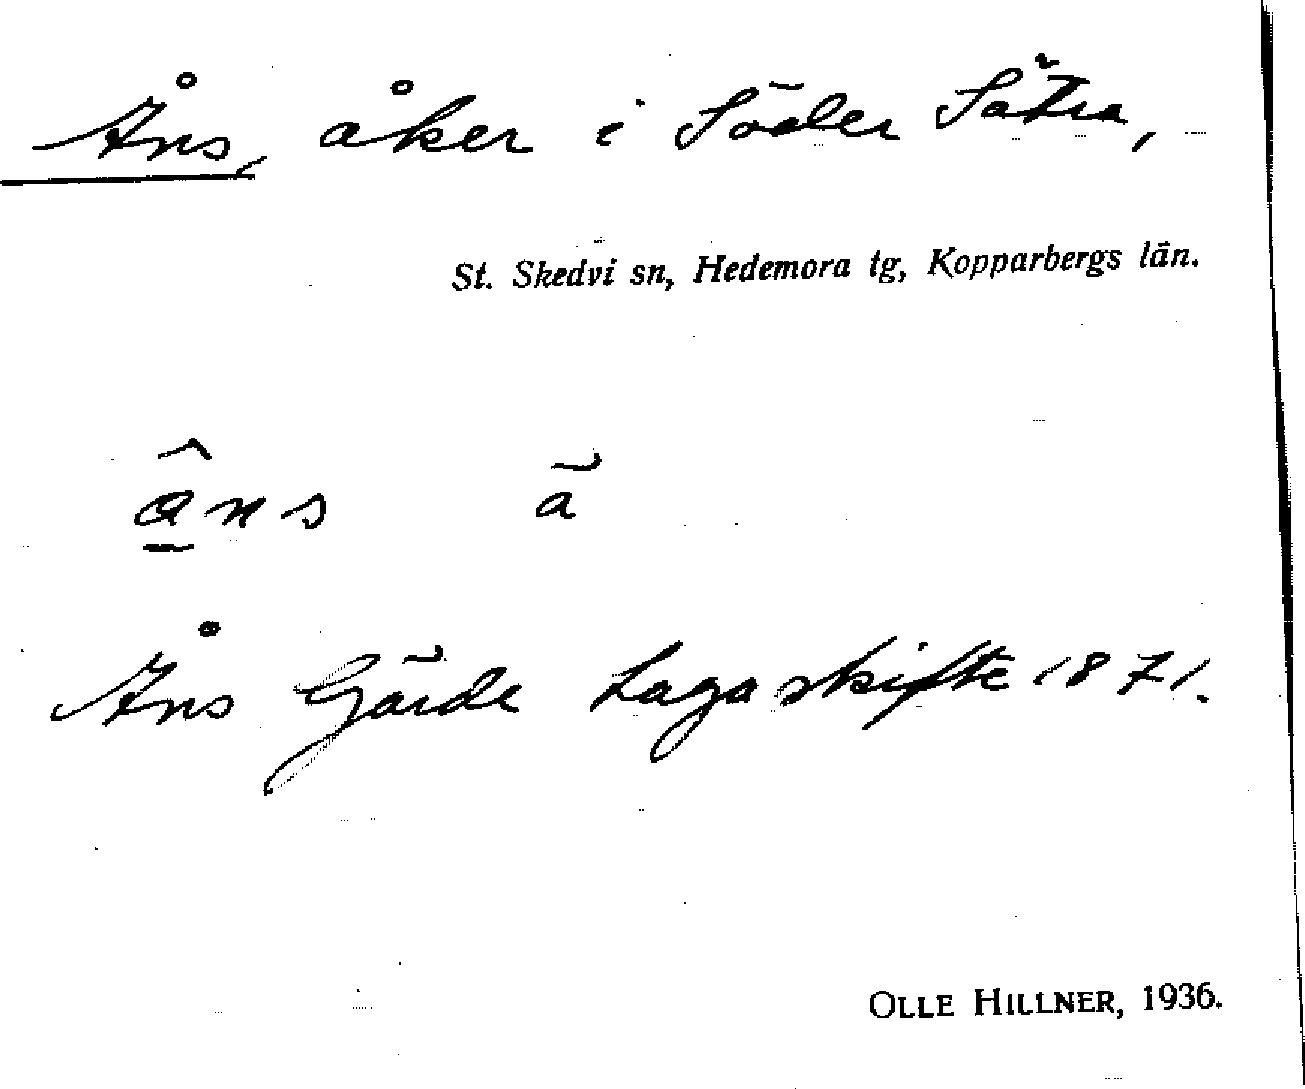 Åns, åker i Söder Sätra,
St. Skedvi sn, Hedemora tg, Kopparbergs län.
â̱ns ã
Åns Gärde Laga skifte 1871.
OLLE HILLNER, 1936.